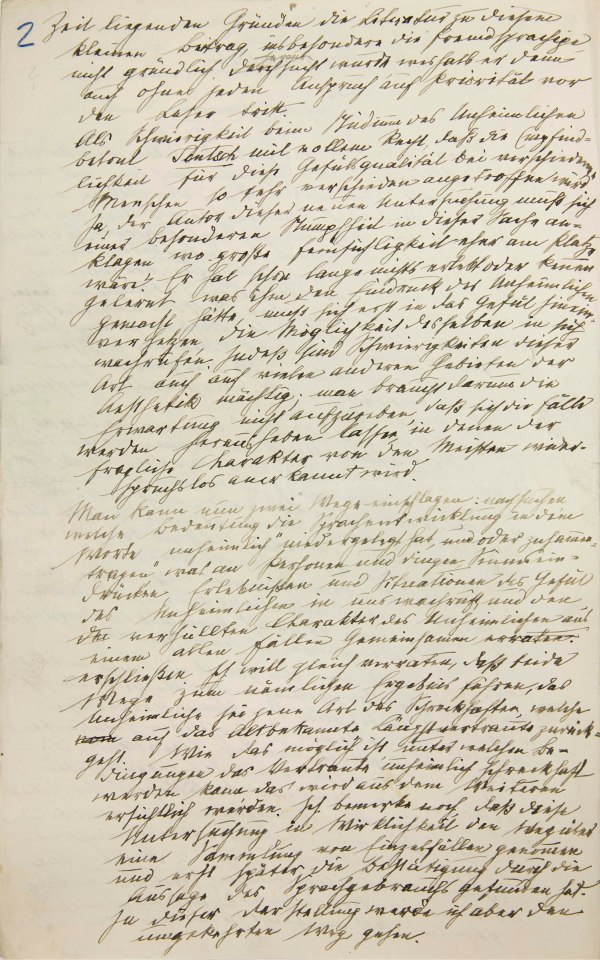 2
Zeit liegenden Gründen die Literatur zu diesem
kleinen Beitrag, insbesondere die fremdsprachige
nicht gründlich heraus gesucht wurde weshalb er denn
auch ohne jeden Anspruch auf Priorität vor
den Leser tritt.
Als Schwierigkeit beim Studium des Unheimlichen
betont Jentsch mit vollem Recht, daß die Empfind-
lichkeit für diese Gefühlsqualität bei verschiedenen
Menschen so sehr verschieden angetroffen wird.
Ja, der Autor dieser neuen Untersuchung muß sich
einer besonderen Stumpfheit in dieser Sache an-
klagen wo große Feinfühligkeit eher am Platze
wäre. Er hat schon lange nichts erlebt oder kennen
gelernt was ihm den Eindruck des Unheimlichen
gemacht hätte, muß sich erst in das Gefühl hinein
versetzen, die Möglichkeit desselben in sich
wachrufen. Indeß sind Schwierigkeiten dieser
Art auch auf vielen anderen Gebieten der
Aesthetik mächtig; man braucht darum die
Erwartung nicht aufzugeben, daß sich die Fälle
werden herausheben lassen, in denen der
fragliche Charakter von den Meisten wider-
spruchslos anerkannt wird.
Man kann nun zwei Wege einschlagen: nachsuchen
welche Bedeutung die Sprachentwicklung in dem
Worte „unheimlich" niedergelegt hat, und oder zusammen-
tragen was an Personen und Dingen Sinnesein-
drücken, Erlebnissen und Situationen das Gefühl
des Unheimlichen in uns wachruft und den
verhüllten Charakter des Unheimlichen aus
einem allen Fällen Gemeinsamen erraten.
erschließen. Ich will gleich verraten, daß beide
Wege zum nämlichen Ergebnis führen, das
Unheimliche sei jene Art des Schreckhaften welche
auf das Altbekannte Längstvertraute zurück-
geht. Wie das möglich ist unter welchen Be-
dingungen das Vertraute unheimlich schreckhaft
werden kann das wird aus dem Weiteren
ersichtlich werden. Ich bemerke noch, daß diese
Untersuchung in Wirklichkeit den Weg über
eine Sammlung von Einzelfällen genommen
und erst später die Bestätigung durch die
Aussage des Sprachgebrauchs gefunden hat.
In dieser Darstellung werde ich aber den
umgekehrten Weg gehen.